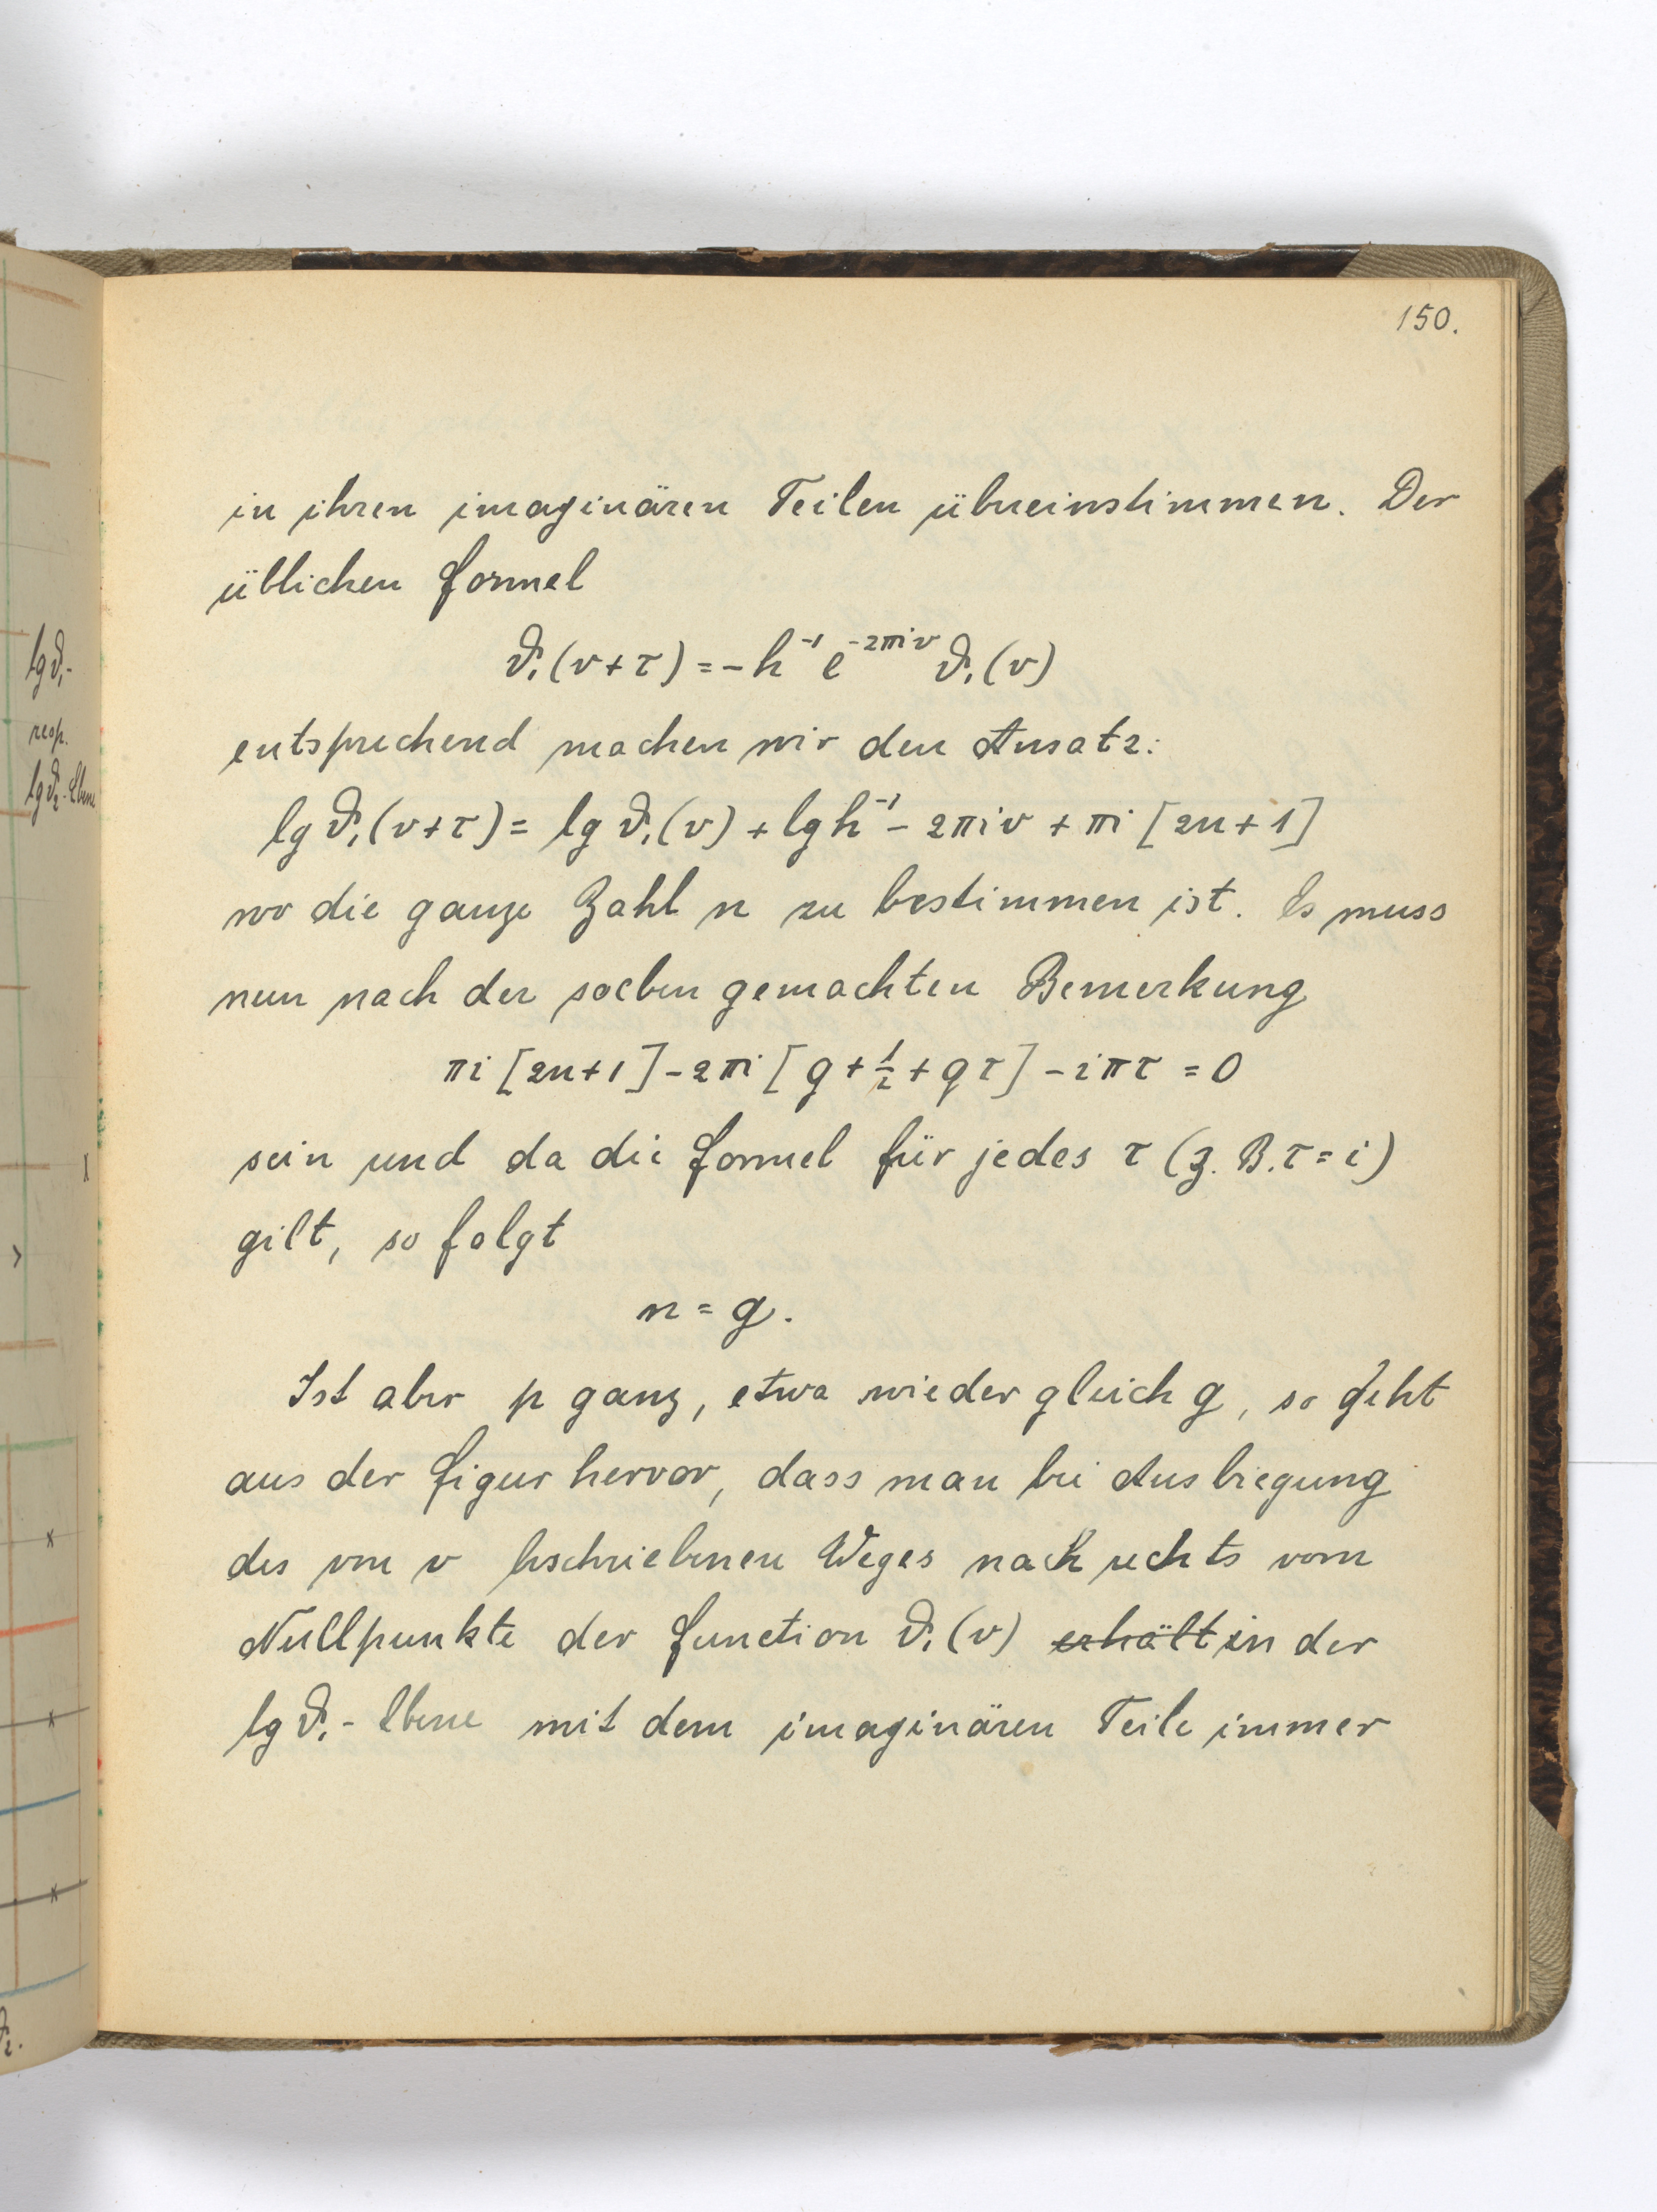 150.
in ihren imaginären Teilen übereinstimmen. Der
üblichen Formel
ϑ₁(v+τ) = -h⁻¹ e⁻²πⁱᵛ ϑ₁(v)
entsprechend machen wir den Ansatz:
lg ϑ₁(v+τ) = lg ϑ₁(v) + lg h⁻¹ - 2πiv + πi [2n+1]
wo die ganze Zahl n zu bestimmen ist. Es muss
nun nach der soeben gemachten Bemerkung
πi [2n+1] - 2πi [g + ½ + qτ] - iπτ = 0
sein und da die Formel für jedes τ (z. B. τ = i)
gilt, so folgt
n = g.
Ist aber p ganz, etwa wieder gleich g, so geht
aus der Figur hervor, dass man bei Ausbiegung
des von v beschriebenen Weges nach rechts vom
Nullpunkte der Function ϑ₁(v) erhält in der
lg ϑ₁- Ebene mit dem imaginären Teile immer
lg ϑ₁-
resp.
lg ϑ₂-Ebene